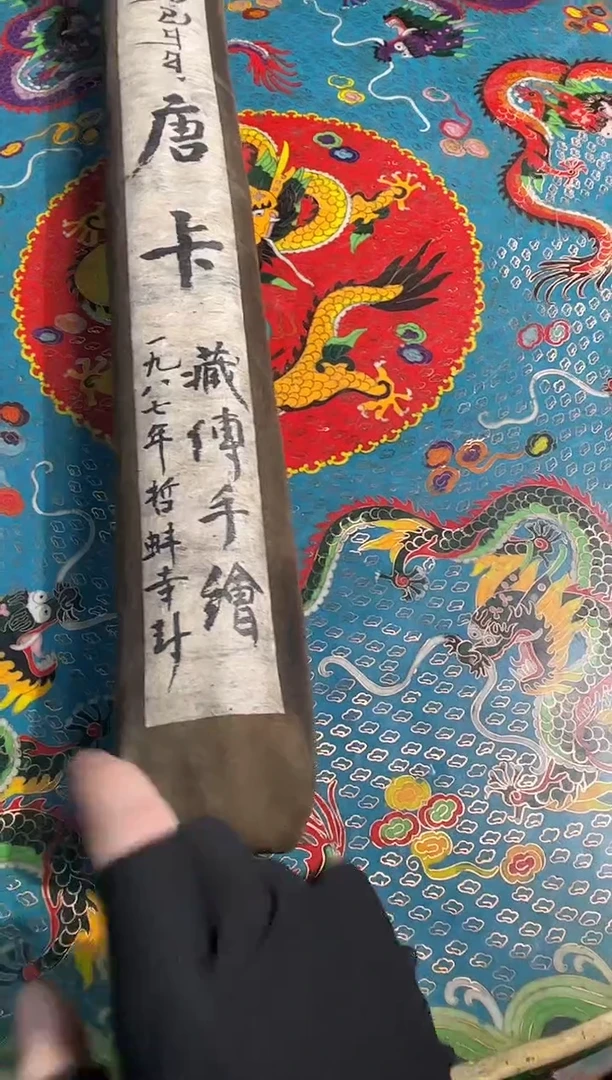 唐卡
藏傳手繪
一九八七年哲蚌寺